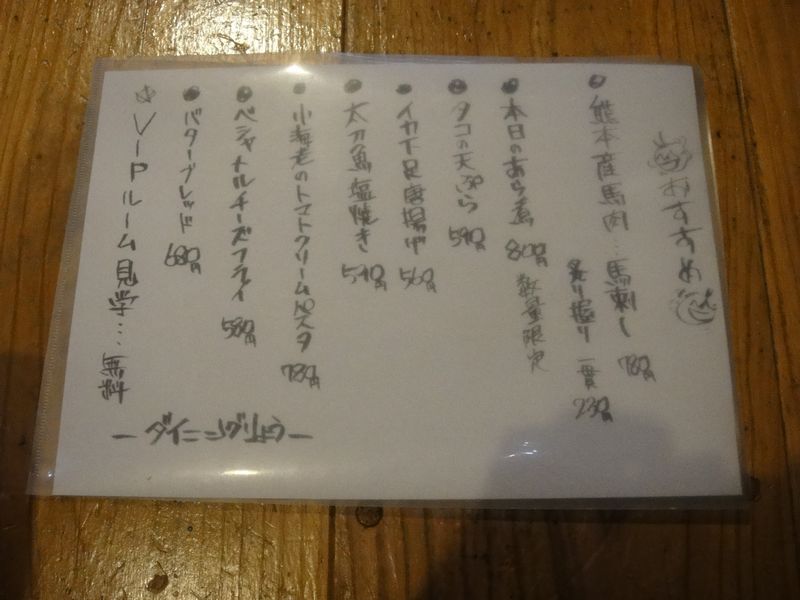 おすすめ
熊本産馬肉…馬刺し 780円
炙り握り 一貫 230円
本日のあら煮 800円 数量限定
タコの天ぷら 590円
イカ下足唐揚げ 560円
太刀魚塩焼き 590円
小海老のトマトクリームパスタ 780円
ベシャメルチーズフライ 580円
バターブレッド 680円
☆VIPルーム見学…無料
―ダイニングりょう―